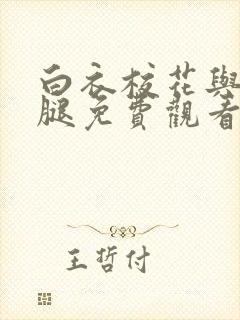 白衣校花與
腿免費觀看
王哲付